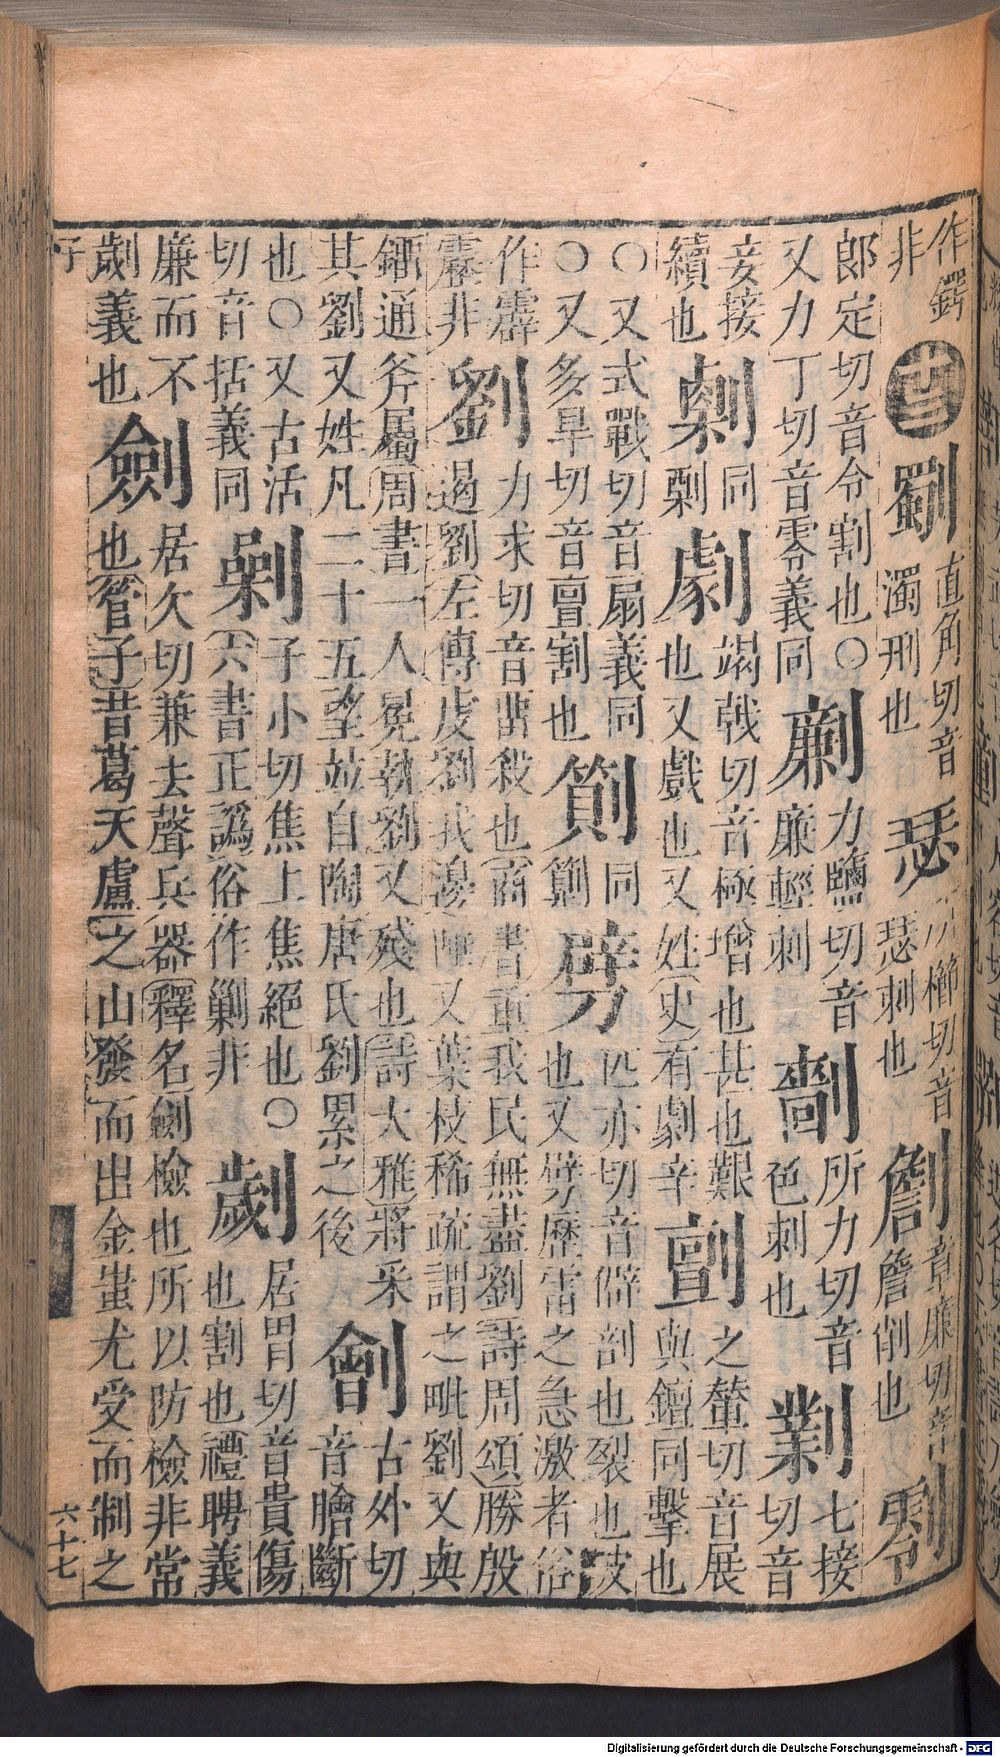 作鍔
非
十三
劅
直角切音
濁刑也
所櫛切音
瑟刺也
章廉切音
詹削也
郎定切音令割也〇
又力丁切音零義同
力鹽切音
廉輕刺
所力切音
色刺也
七接
切音
妾接
續也
同
劇
竭戟切音極增也甚也艱
也又戲也又姓史有劇辛
之輦切音展
同擊也
〇又式戰切音扇義同
〇又多旱切音亶割也
同
劈
匹亦切音僻剖也裂也破
也又劈歷雷之急激者俗
作霹
靂非
劉
力求切音留殺也商書重我民無盡劉詩周頌勝殷
遏劉左傳虔劉我邊陲又葉枝稀疏謂之毗劉又與
鎦通斧屬周書一人冕執劉又殘也詩大雅將采
其劉又姓凡二十五望竝自陶唐氏劉累之後
劊
古外切
音膾斷
也〇又古活
切音括義同
剿
子小切焦上焦絕也〇
六書正譌俗作剿非
劌
居胃切音貴傷
也割也禮聘義
廉而不
劌義也
劒
居欠切兼去聲兵器釋名劍檢也所以防檢非常
也管子昔葛天盧之山發而出金蚩尤受而制之
子
六十七
Digitalisierung gefördert durch die Deutsche Forschungsgemeinschaft - DFG